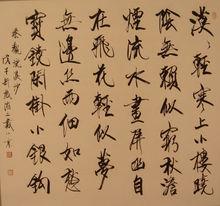 漠々輕寒上小樓曉
陰無賴似窮秋澹
煙流水畫屏幽自
在飛花輕似夢
無邊絲雨細如愁
寶鏡閒掛小銀鉤
秦觀浣溪沙